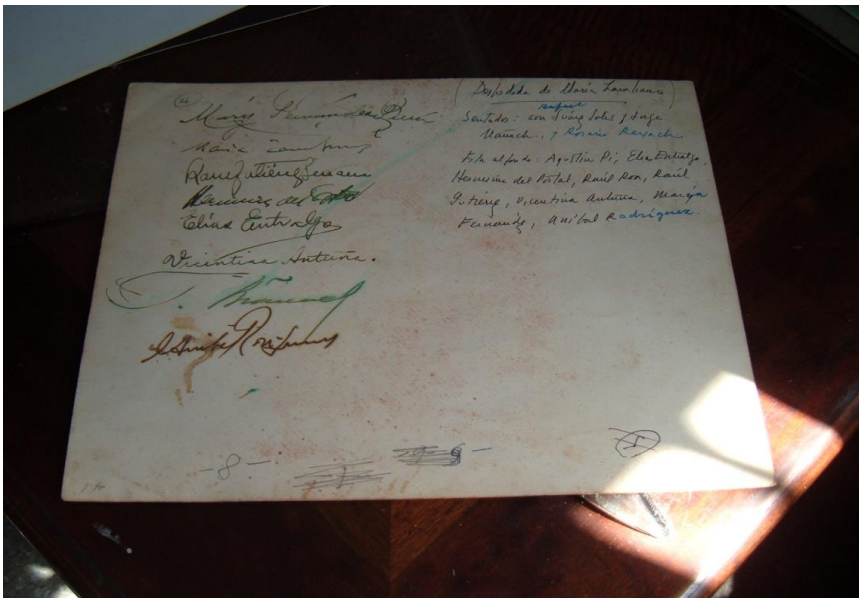 26
María Fernández
María Zambrano
Raúl Gutiérrez Serrano
Herminia del Portal
Elías Entralgo
Vicentina Antuña.
J. Mañach
Aníbal Rodríguez
(Despedida de María Zambrano)
Sentados: con Jorge
Mañach, y Rosario Rexach
Fila al fondo: Agustín Pi, Elías Entralgo,
Herminia del Portal, Raúl Roa, Raúl
Gutiérrez, Vicentina Antuña, María
Fernández, Aníbal Rodríguez.
5
-8-